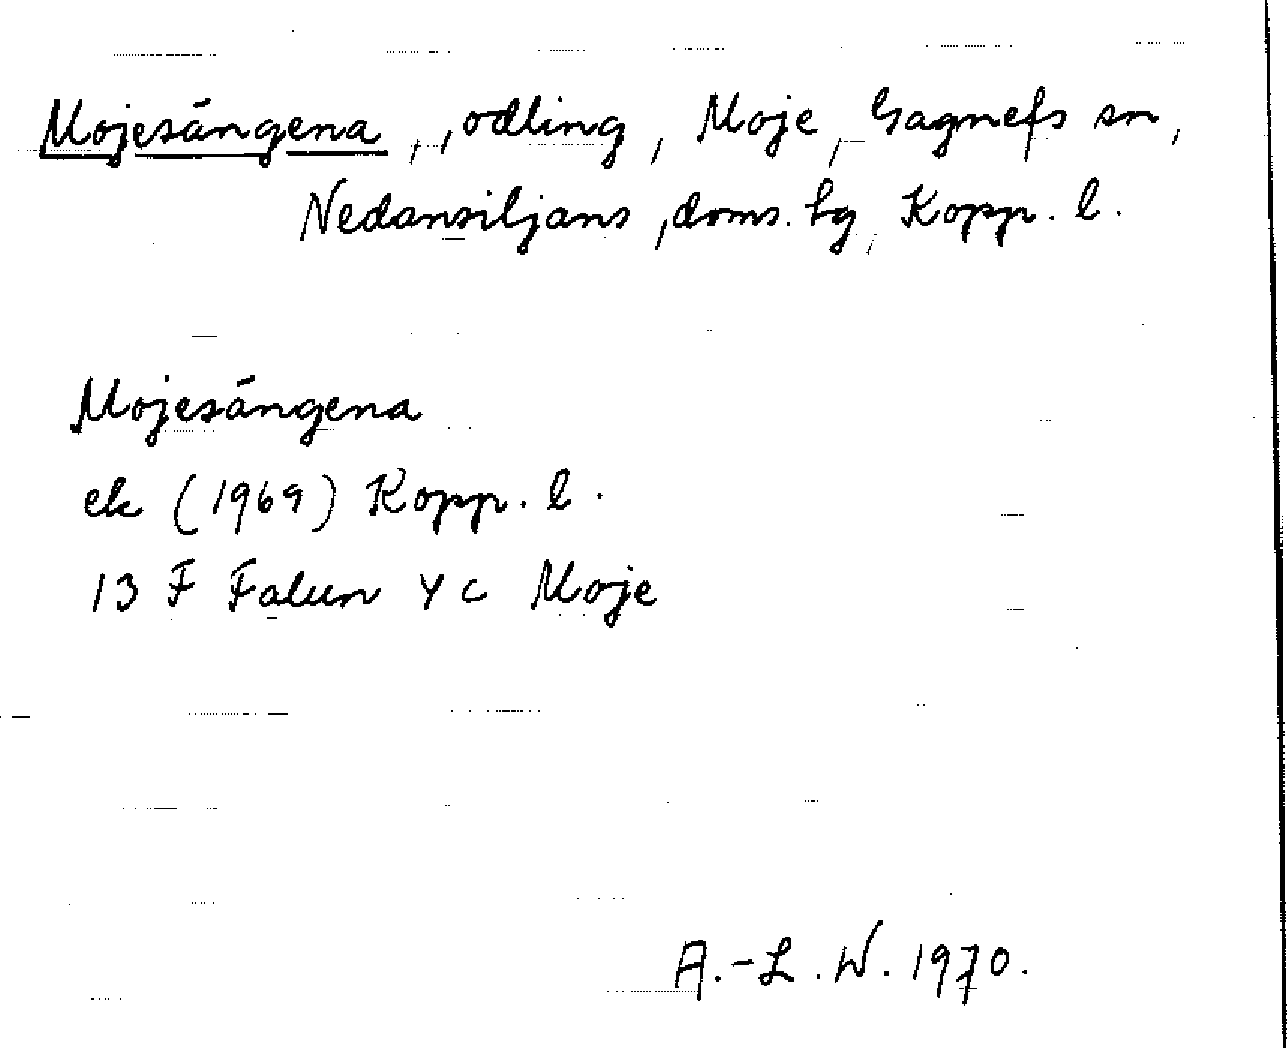 Mojesängena, , odling, Moje, Gagnefs sn,
Nedansiljans, doms. hg, Kopp. l.
Mojesängena
ek (1969) Kopp. l.
13 F Falun Y c Moje
A.-L. W. 1970.